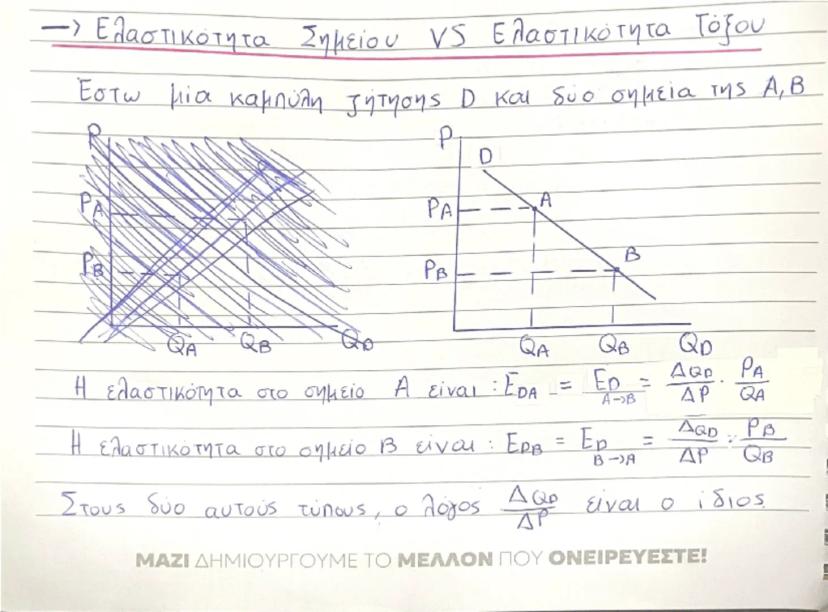 → Ελαστικότητα Σημείου VS Ελαστικότητα Τόξου
Έστω μία καμπύλη ζήτησης D και δύο σημεία της A, B
P
PA
PB
QA QB QD
P
D
A
PA
B
PB
QA QB QD
Η ελαστικότητα στο σημείο A είναι : EDA = ED A→B = ΔQD/ΔP · PA/QA
Η ελαστικότητα στο σημείο B είναι : EDB = ED B→A = ΔQD/ΔP · PB/QB
Στους δύο αυτούς τύπους, ο λόγος ΔQD/ΔP είναι ο ίδιος
ΜΑΖΙ ΔΗΜΙΟΥΡΓΟΥΜΕ ΤΟ ΜΕΛΛΟΝ ΠΟΥ ΟΝΕΙΡΕΥΕΣΤΕ!